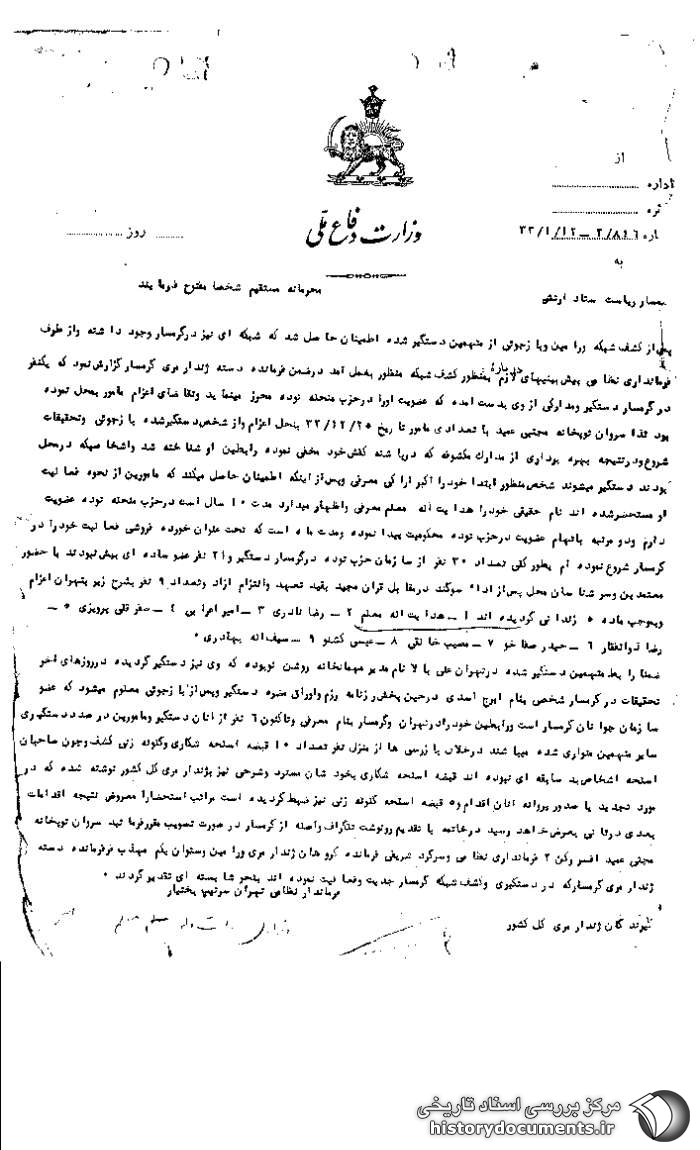 از
اداره
وزارت دفاع ملی
روز
به
محرمانه مستقیم شخصا مفتوح فرمایند
ریاست ستاد ارتش
پس از کشف شبکه ورامین وبا زجوئی از متهمین دستگیر شده اطمینان حاصل شد که شبکه ای نیز درگرمسار وجود داشته واز طرف
فرمانداری نظامی پیش بینیهای لازم درباره بمنظور کشف شبکه منظور بعمل آمد درضمن فرمانده دسته ژندارمری گرمسار گزارش نمود که یکنفر
درگرمسار دستگیر ومدارکی از وی بدست آمده که عضویت اورا درحزب منحله توده محرز مینماید وتقاضای اعزام مامور بمحل نموده
بود لذا سروان توپخانه مجتبی عمید با تعدادی مامور تا ریخ ۳۲/۱۲/۲۵ بمحل اعزام واز شخص دستگیرشده با زجوئی وتحقیقات
شروع ودرنتیجه بهره برداری از مدارک مکشوفه که درپا شنه کفش خود مخفی نموده رابطین او شناخته شد واشخاصیکه درمحل
بودند دستگیر میشوند شخص منظور ابتدا خودرا اکبر اراکی معرفی وپس از اینکه اطمینان حاصل میکند که مامورین از نحوه فعالیت
او مستحضرشده اند نام حقیقی خودرا هدایت اله معلم معرفی واظهار میدارد مدت ۱۰ سال است درحزب منحله توده عضویت
دارم ودو مرتبه باتهام عضویت درحزب توده محکومیت پیدا نموده ومدت ماه است که تحت عنوان خورده فروشی فعالیت خودرا در
گرمسار شروع نموده ام بطور کلی تعداد ۳۰ نفر از سازمان حزب توده درگرمسار دستگیر و۲۱ نفر عضو ساده ای بیش نبودند با حضور
معتمدین وسرشناسان محل پس از اداء سوگند درمقابل قران مجید بقید تعهد والتزام ازاد وتعداد ۹ نفر بشرح زیر بتهران اعزام
وبموجب ماده ۵ زندانی گردیده اند ۱ـ هدایت اله معلم ۲ ـ رضا نادری ۳ ـ امیر اعرابی ٤ ـ صفر قلی پرویزی ۵ ـ
رضا ذوالفقار ٦ ـ حیدر صفا خو ۷ ـ مصیب خانقی ۸ ـ عیسی کشلو ۹ ـ سیف اله بهادری
ضمنا رابط متهمین دستگیر شده درتهران علی با لا نام مدیر مهمانخانه روشن نوبوده که وی نیز دستگیر گردیده درروزهای اخر
تحقیقات در گرمسار شخصی بنام ایرج اسدی درحین پخش رزنامه رزم واوراق مضره دستگیر وپس از با زجوئی معلوم میشود که عضو
سازمان جوانان گرمسار است ورابطین خودرا درتهران وگرمسار بنام معرفی وتاکنون ٦ نفر از انان دستگیر ومامورین در صدد دستگیری
سایر متهمین متواری شده میباشند درخلال با زرسی ها از منزل نفر تعداد ۱۰ قبضه اسلحه شکاری وگلوله زنی کشف وچون صاحبان
اسلحه اشخاص بد سابقه ای نبوده اند قبضه اسلحه شکاری بخود شان مسترد وشرحی نیز بژندارمری کل کشور نوشته شده که در
مورد تجدید یا صدور پروانه انان اقدام و۵ قبضه اسلحه گلوله زنی نیز ضبط گردیده است مراتب استحضارا معروض نتیجه اقدامات
بعدی درثانی بعرض خواهد رسید درخاتمه با تقدیم رونوشت تلگراف واصله از گرمسار در صورت تصویب مقررفرمائید سروان توپخانه
مجتبی عمید افسر رکن ۲ فرمانداری نظامی وسرگرد شریفی فرمانده گروهان ژندارمری ورامین وستوان یکم مهذب فرفرمانده دسته
ژندارمری گرمسارکه در دستگیری وکشف شبکه گرمسار جدیت وفعالیت نموده اند بنحو شایسته ای تقدیر گردند
فرماندار نظامی تهران سرتیپ بختیار
گیرندگان ژندارمری کل کشور
مرکز بررسی اسناد تاریخی
historydocuments.ir